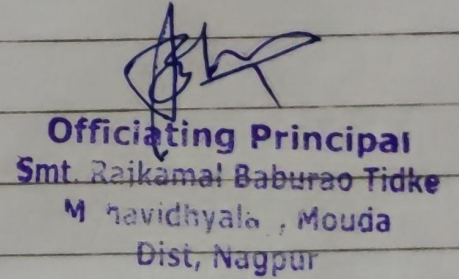 Officiating Principal
Smt. Rajkamal Baburao Tidke
M havidhyala , Mouda
Dist, Nagpur